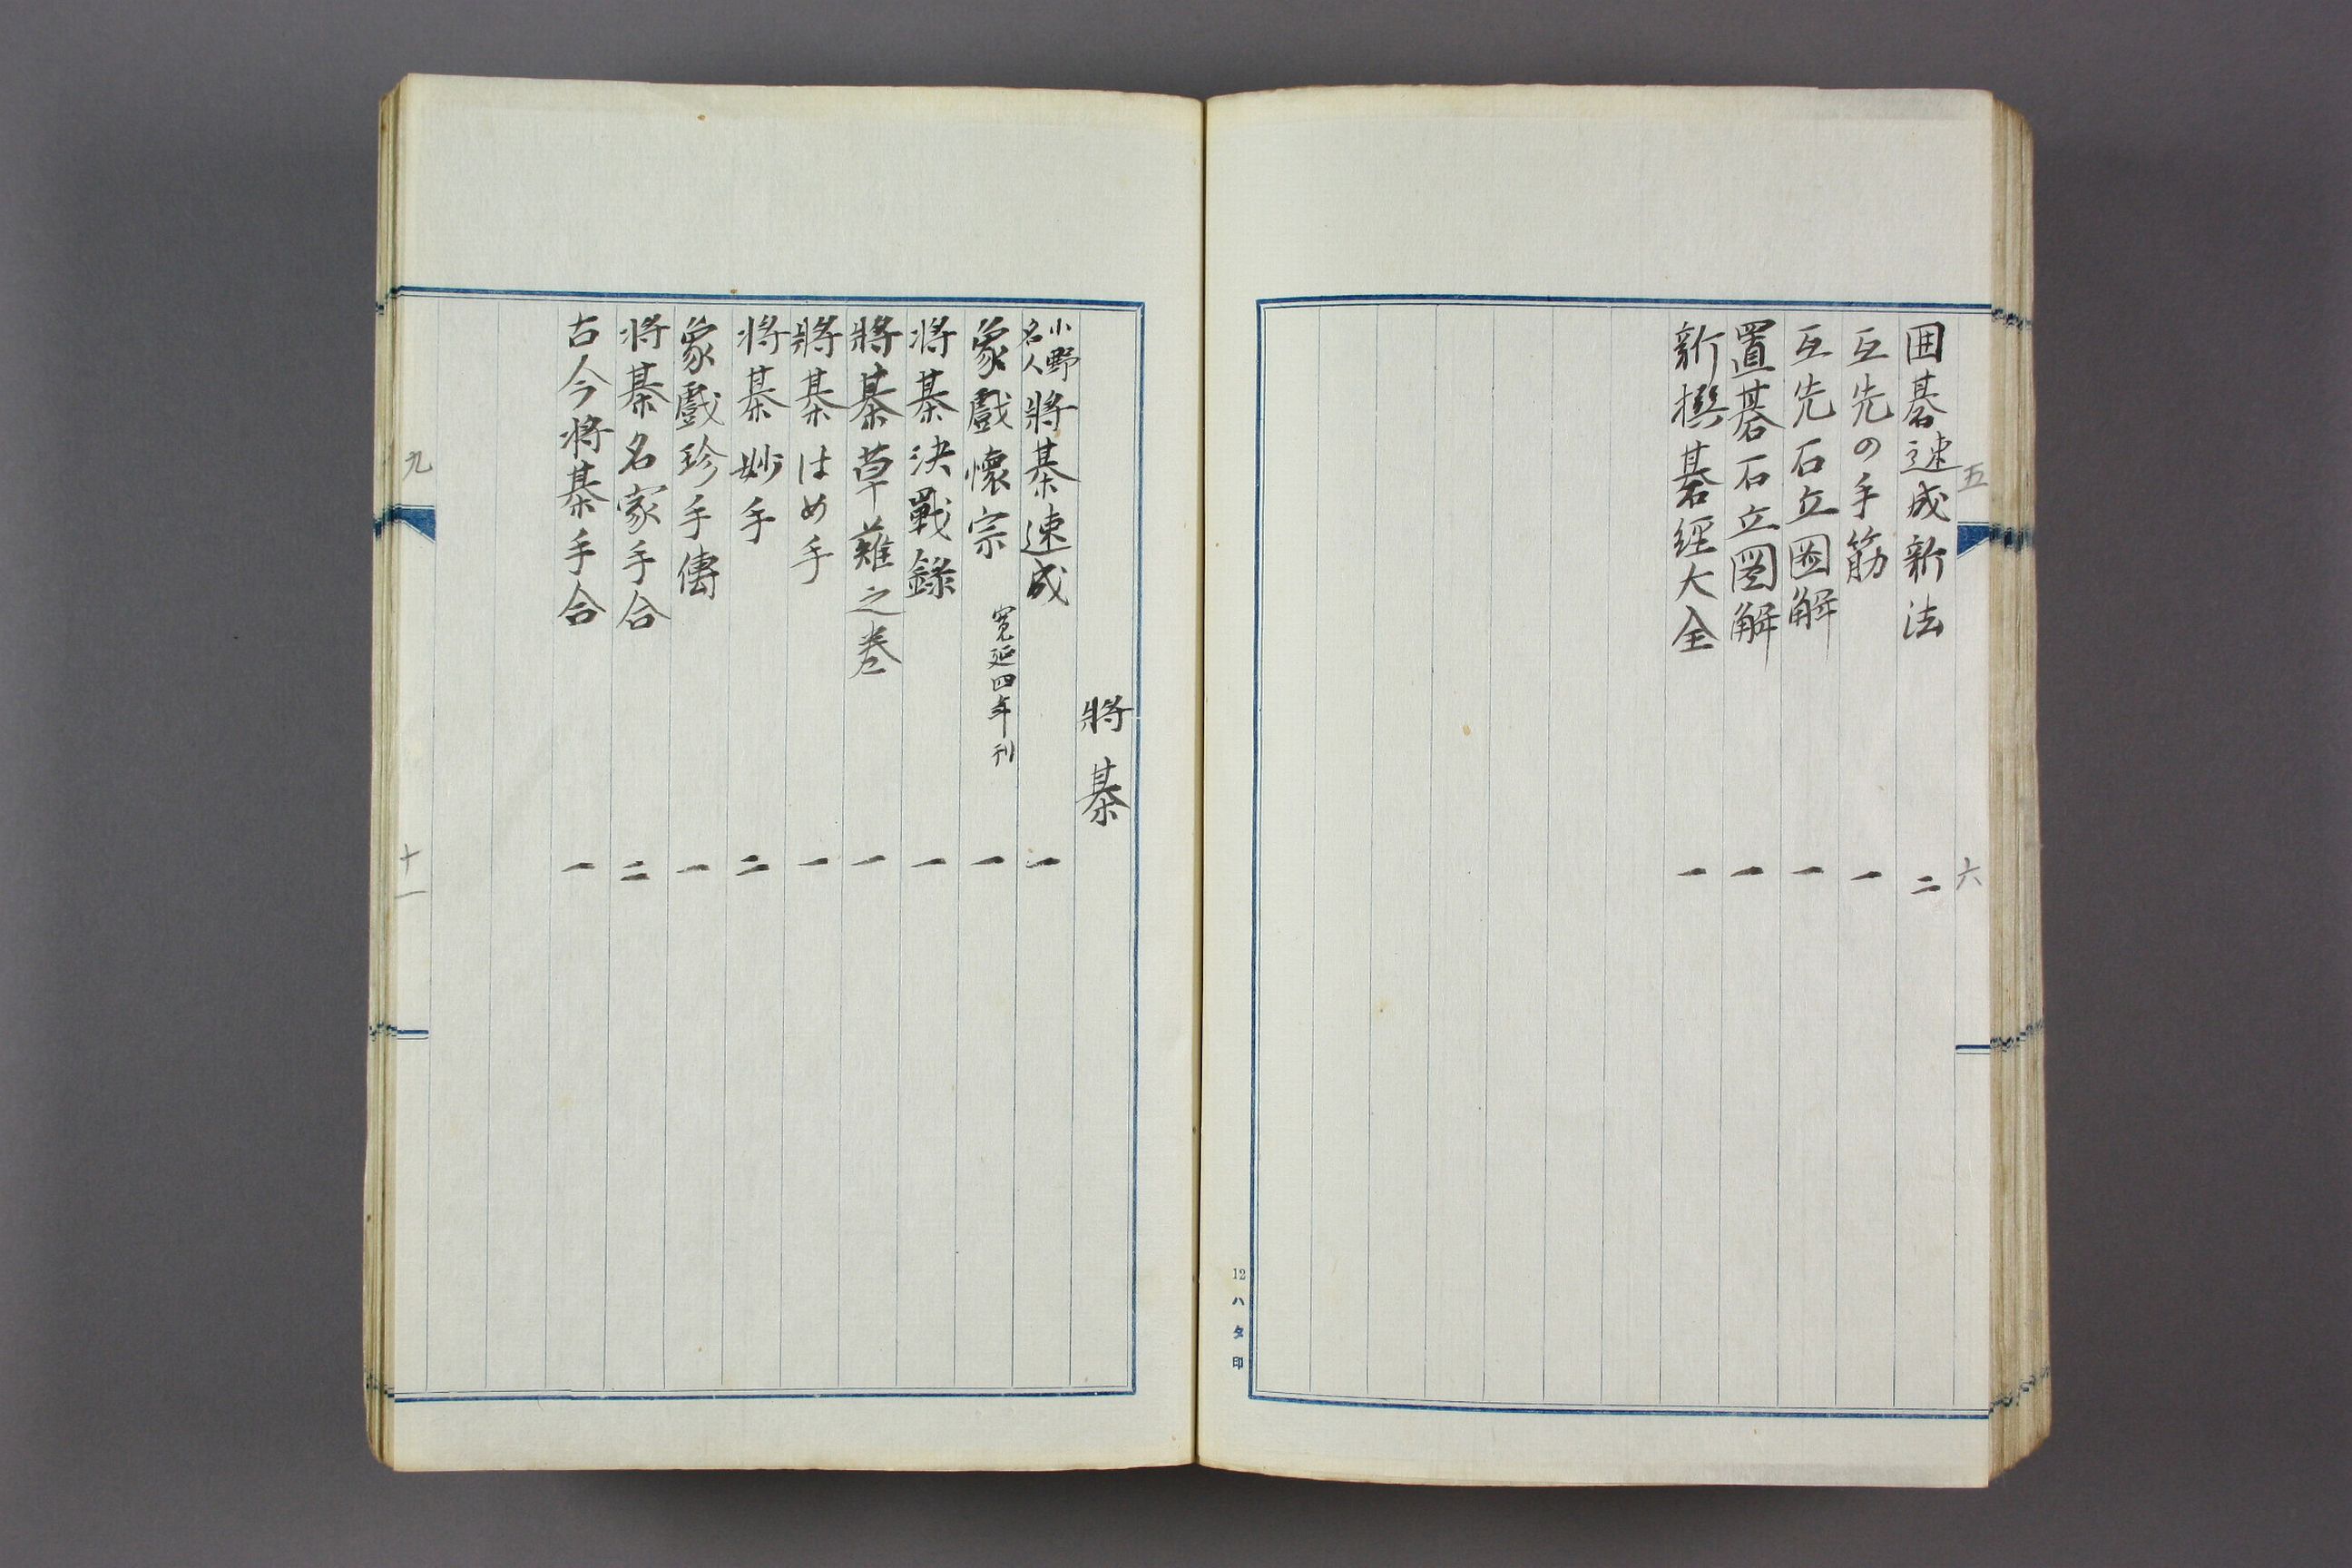 五
六
囲碁速成新法 二
互先の手筋 一
互先石立図解 一
置碁石立圖解 一
新撰碁経大全 一
12ハタ印
將棊
小野名人 將棊速成 一
象戲懷宗 寛延四年刊 一
将棊決戰錄 一
將棊草薙之巻 一
將棊はめ手 一
将棊妙手 二
象戲珍手傳 一
将棊名家手合 二
古今将棊手合 一
九
十一